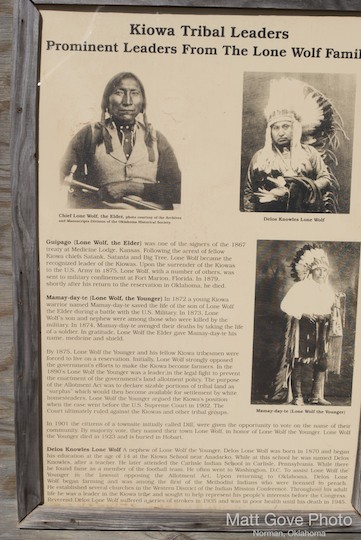 Kiowa Tribal Leaders
Prominent Leaders From The Lone Wolf Famil
Chief Lone Wolf, the Elder, photo courtesy of the Archives
and Manuscripts Division of the Oklahoma Historical Society
Delos Knowles Lone Wolf
Guipago (Lone Wolf, the Elder) was one of the signers of the 1867
treaty at Medicine Lodge, Kansas. Following the arrest of fellow
Kiowa chiefs Satank, Satanta and Big Tree, Lone Wolf became the
recognized leader of the Kiowas. Upon the surrender of the Kiowas
to the U.S. Army in 1875, Lone Wolf, with a number of others, was
sent to military confinement at Fort Marion, Florida. In 1879,
shortly after his return to the reservation in Oklahoma, he died.
Mamay-day-te (Lone Wolf, the Younger) In 1872 a young Kiowa
warrior named Mamay-day-te saved the life of the son of Lone Wolf
the Elder during a battle with the U.S. Military. In 1873, Lone
Wolf's son and nephew were among those who were killed by the
military. In 1874, Mamay-day-te avenged their deaths by taking the life
of a soldier. In gratitude, Lone Wolf the Elder gave Mamay-day-te his
name, medicine and shield.
By 1875, Lone Wolf the Younger and his fellow Kiowa tribesmen were
forced to live on a reservation. Initially, Lone Wolf strongly opposed
the government's efforts to make the Kiowa become farmers. In the
1890's Lone Wolf the Younger was a leader in the legal fight to prevent
the enactment of the government's land allotment policy. The purpose
of the Allotment Act was to declare sizable portions of tribal land as
"surplus" which would then become available for settlement by white
homesteaders. Lone Wolf the Younger argued the Kiowa's position
when the case went before the U.S. Supreme Court in 1903. The
Court ultimately ruled against the Kiowas and other tribal groups.
Mamay-day-te (Lone Wolf the Younger)
In 1901 the citizens of a townsite initially called were given the opportunity to vote on the name of their
community. By majority vote, they named their town Lone Wolf, in honor of Lone Wolf the Younger. Lone
Wolf the Younger died in 1923 and is buried in Hobart.
Delos Knowles Lone Wolf A nephew of Lone Wolf the Younger, Delos Lone Wolf was born in 1870 and began
his education at the age of 14 at the Kiowa School near Anadarko. While at this school he was named Delos
Knowles, after a teacher. He later attended the Carlisle Indian School in Carlisle, Pennsylvania. While there
he found fame as a member of the football team. He often went to Washington, D.C. To assist Lone Wolf the
Younger in his lawsuit opposing the Allotment Act. Upon returning to Oklahoma, Delos Lone
Wolf began farming and was among the first of the Methodist Indians to be licensed to preach.
He established several churches in the Western District of the Indian Mission Conference. Throughout his adult
life he was a leader in the Kiowa tribe and sought to help represent his people's interests before the Congress.
Reverend Delos Lone Wolf suffered a series of strokes in 1939 and was in poor health until his death in 1945.
Matt Gove Photo
Norman, Oklahoma